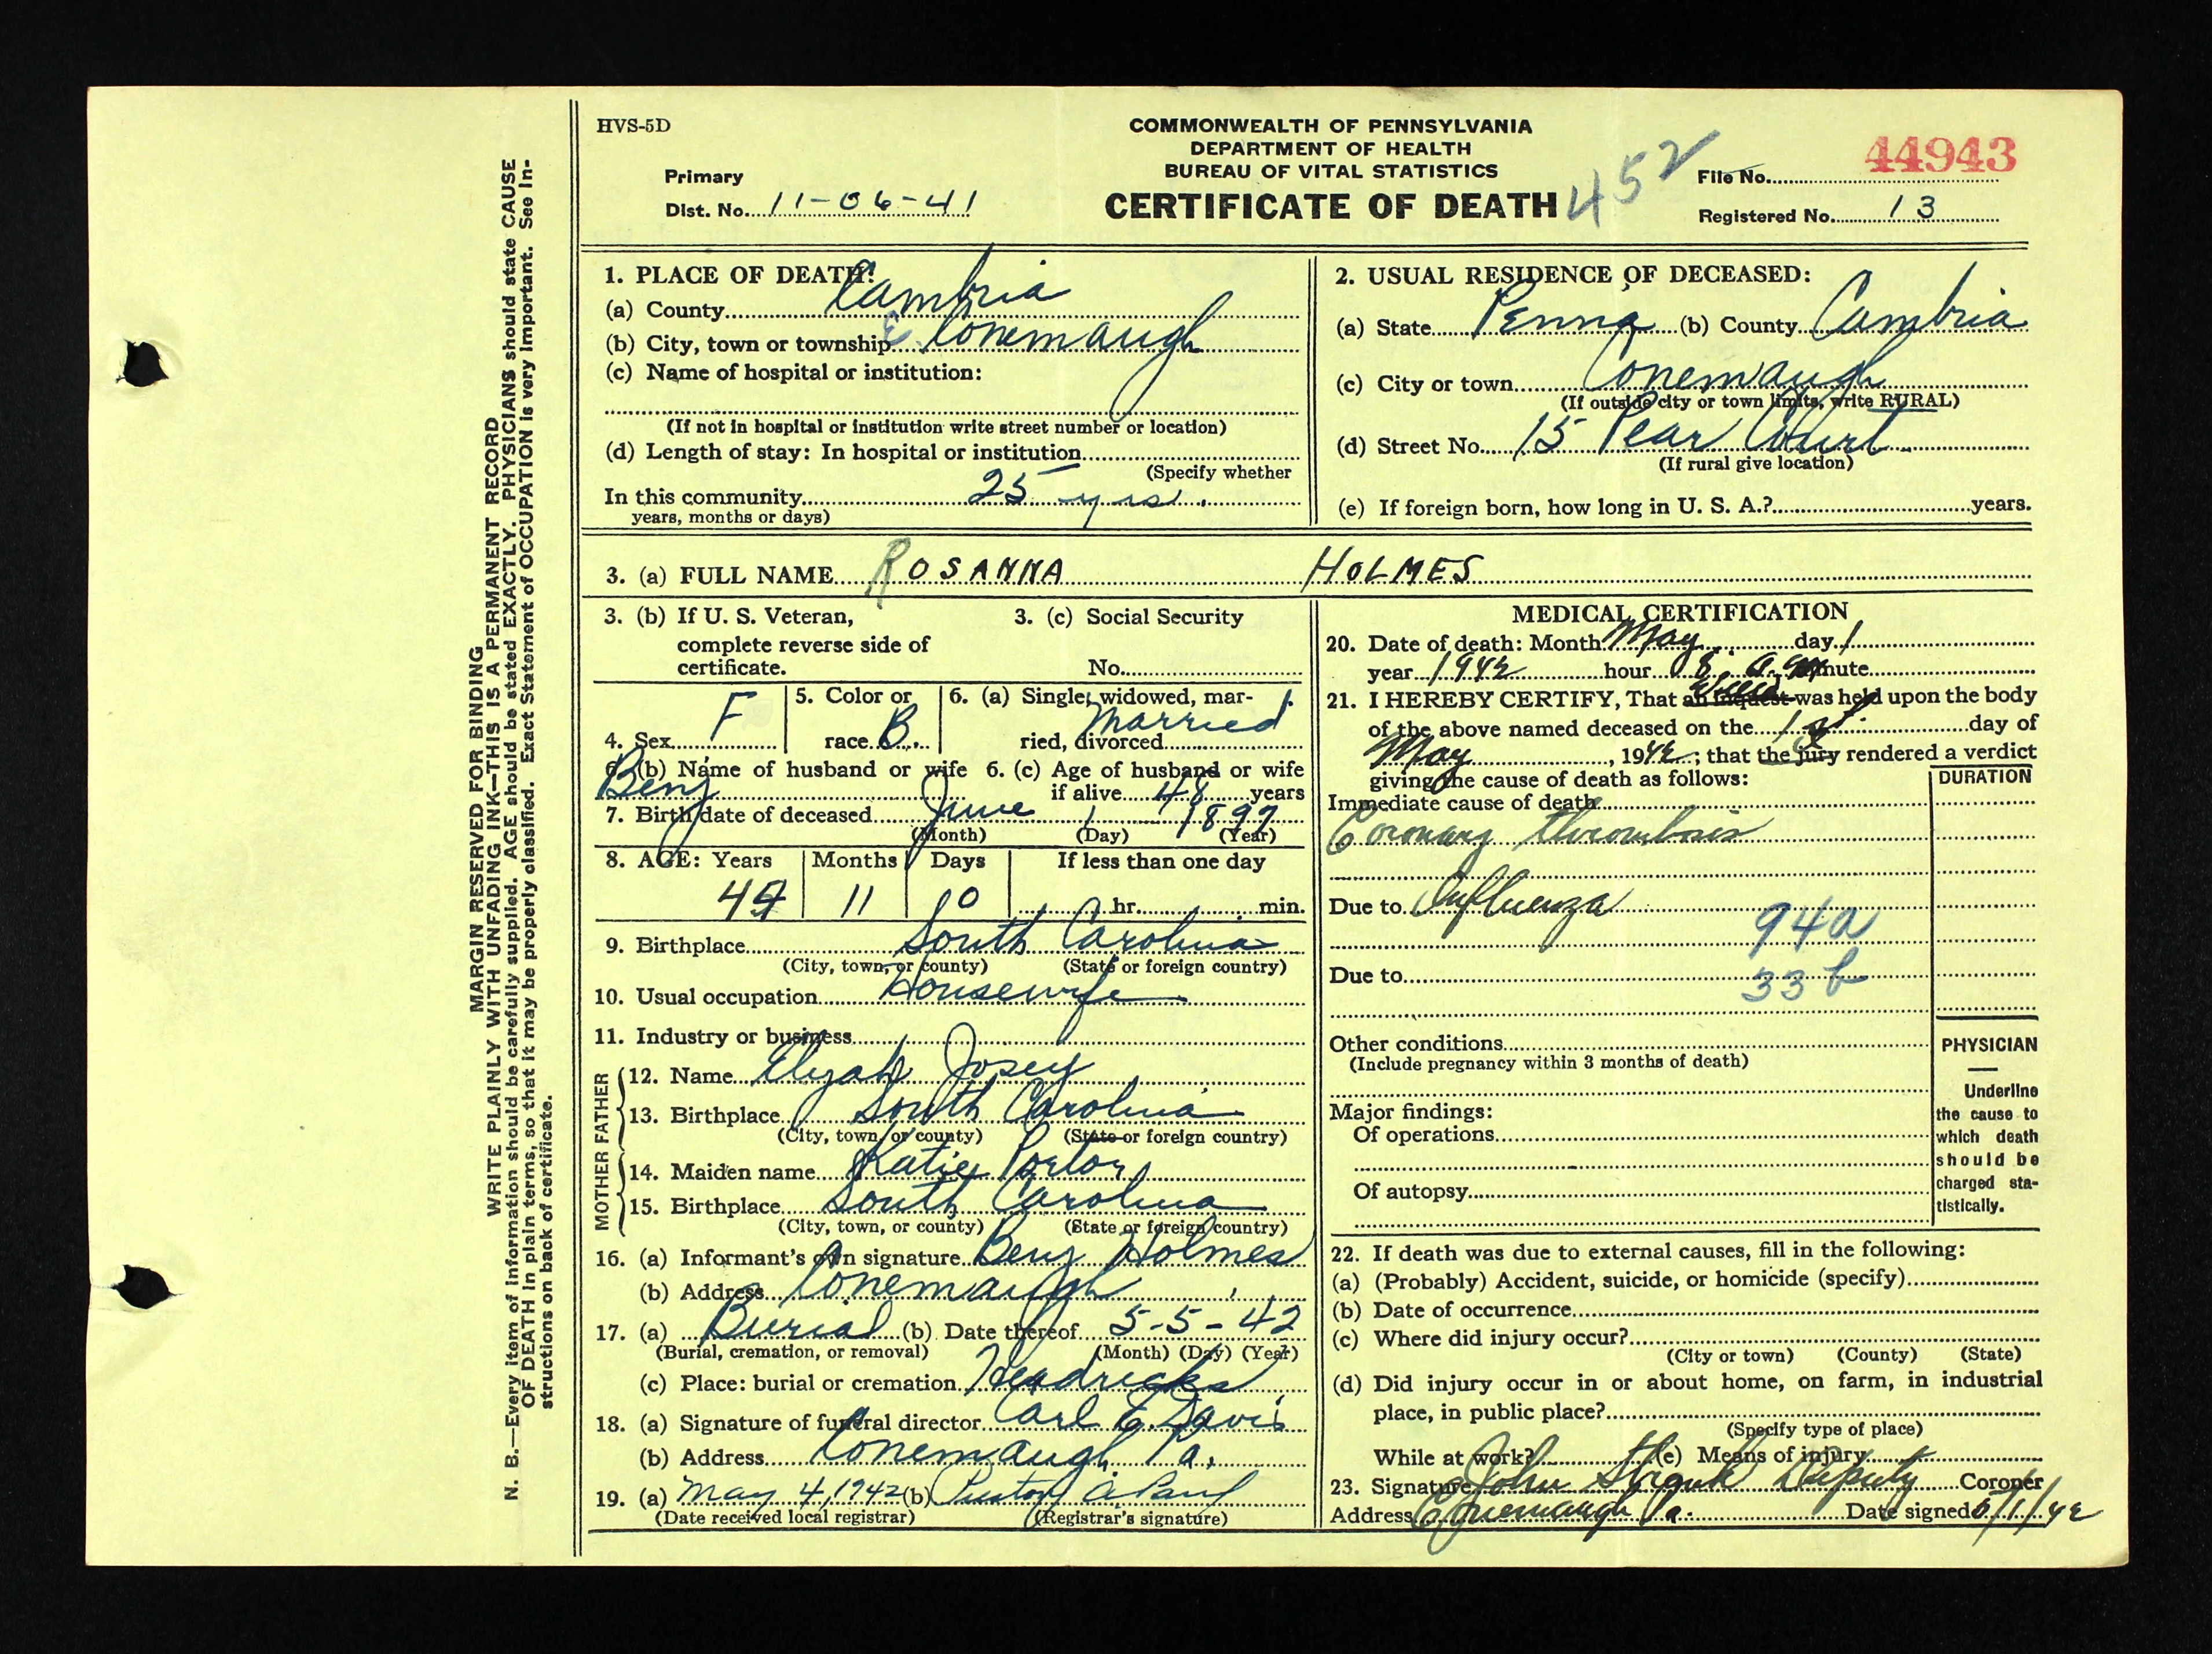 HVS-5D
COMMONWEALTH OF PENNSYLVANIA
DEPARTMENT OF HEALTH
BUREAU OF VITAL STATISTICS
CERTIFICATE OF DEATH
452
44943
File No.
Primary
Dist. No. 11-06-41
Registered No. 13
MARGIN RESERVED FOR BINDING
WRITE PLAINLY WITH UNFADING INK—THIS IS A PERMANENT RECORD
N. B.—Every item of information should be carefully supplied. AGE should be stated EXACTLY. PHYSICIANS should state CAUSE
OF DEATH in plain terms, so that it may be properly classified. Exact Statement of OCCUPATION is very important. See In-
structions on back of certificate.
1. PLACE OF DEATH:
(a) County Cambria
(b) City, town or township E Conemaugh
(c) Name of hospital or institution:
(If not in hospital or institution write street number or location)
(d) Length of stay: In hospital or institution
(Specify whether
In this community 25 yrs.
years, months or days)
2. USUAL RESIDENCE OF DECEASED:
(a) State Penna (b) County Cambria
(c) City or town Conemaugh
(If outside city or town limits, write RURAL)
(d) Street No. 15 Pear Court
(If rural give location)
(e) If foreign born, how long in U. S. A.? years.
3. (a) FULL NAME ROSANNA HOLMES
3. (b) If U. S. Veteran,
complete reverse side of
certificate.
3. (c) Social Security
No.
4. Sex F
5. Color or
race B.
6. (a) Single, widowed, mar-
ried, divorced Married
6. (b) Name of husband or wife
Benj
6. (c) Age of husband or wife
if alive 48 years
7. Birth date of deceased June 1 1897
(Month) (Day) (Year)
8. AGE: Years Months Days If less than one day
44 11 0 hr. min.
9. Birthplace South Carolina
(City, town, or county) (State or foreign country)
10. Usual occupation Housewife
11. Industry or business
FATHER
12. Name Elyah Josey
13. Birthplace South Carolina
(City, town, or county) (State or foreign country)
MOTHER
14. Maiden name Katie Portor
15. Birthplace South Carolina
(City, town, or county) (State or foreign country)
16. (a) Informant's own signature Benj Holmes
(b) Address Conemaugh
17. (a) Burial (b) Date thereof 5-5-42
(Burial, cremation, or removal) (Month) (Day) (Year)
(c) Place: burial or cremation Headricks
18. (a) Signature of funeral director Carl E. Davis
(b) Address Conemaugh Pa.
19. (a) May 4, 1942 (b) Preston A. Paul
(Date received local registrar) (Registrar's signature)
MEDICAL CERTIFICATION
20. Date of death: Month May day 1
year 1942 hour 8 a.m. minute
21. I HEREBY CERTIFY, That an inquest view was held upon the body
of the above named deceased on the 1st day of
May, 1942; that the jury I rendered a verdict
giving the cause of death as follows:
DURATION
Immediate cause of death
Coronary thrombosis
Due to Influenza
94a
Due to
33b
Other conditions
(Include pregnancy within 3 months of death)
Major findings:
Of operations
Of autopsy
PHYSICIAN
—
Underline
the cause to
which death
should be
charged sta-
tistically.
22. If death was due to external causes, fill in the following:
(a) (Probably) Accident, suicide, or homicide (specify)
(b) Date of occurrence
(c) Where did injury occur?
(City or town) (County) (State)
(d) Did injury occur in or about home, on farm, in industrial
place, in public place?
(Specify type of place)
While at work? (e) Means of injury
23. Signature John Deputy Coroner
Address Conemaugh Pa. Date signed 5/1/42